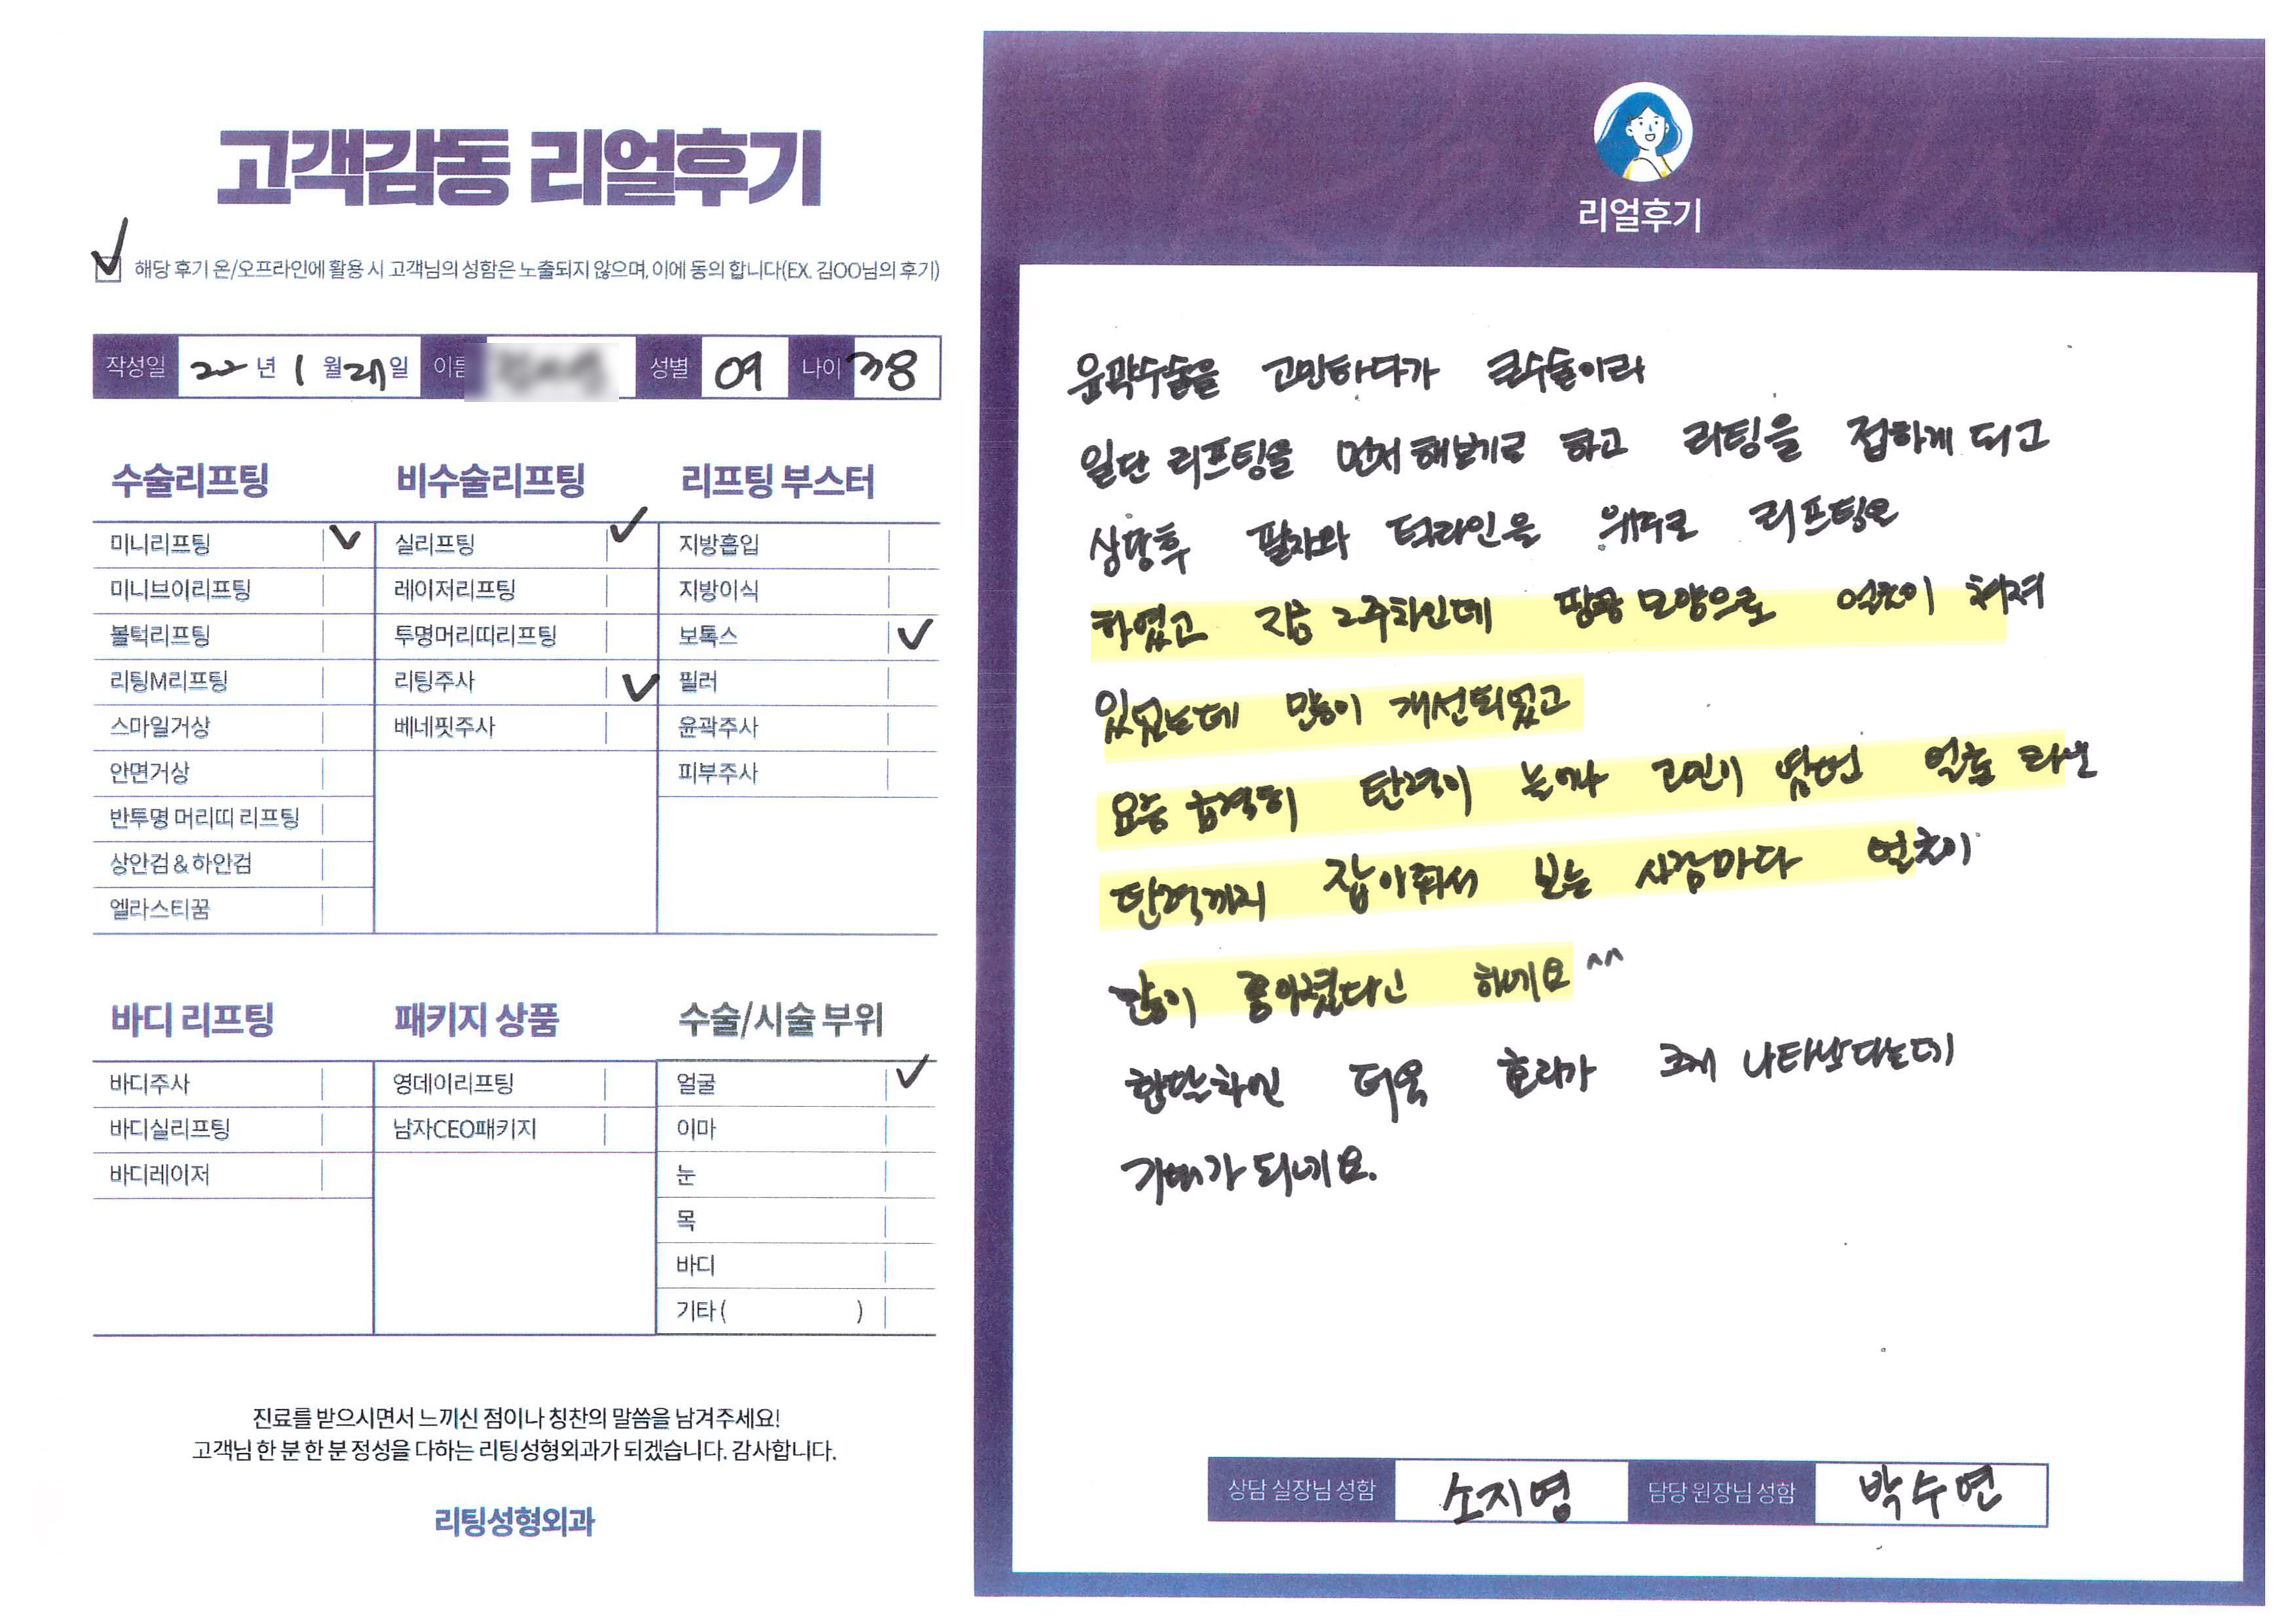 고객감동 리얼후기
해당 후기 온/오프라인에 활용 시 고객님의 성함은 노출되지 않으며, 이에 동의 합니다(EX. 김OO님의 후기)
작성일 22년 1월 일 이름 성별 여 나이 38
수술리프팅
미니리프팅
미니브이리프팅
볼턱리프팅
리팅M리프팅
스마일거상
안면거상
반투명 머리띠 리프팅
상안검 & 하안검
엘라스티꿈
비수술리프팅
실리프팅
레이저리프팅
투명머리띠리프팅
리팅주사
베네핏주사
리프팅 부스터
지방흡입
지방이식
보톡스
필러
윤곽주사
피부주사
바디 리프팅
바디주사
바디실리프팅
바디레이저
패키지 상품
영데이리프팅
남자CEO패키지
수술/시술 부위
얼굴
이마
눈
목
바디
기타 ( )
진료를 받으시면서 느끼신 점이나 칭찬의 말씀을 남겨주세요!
고객님 한 분 한 분 정성을 다하는 리팅성형외과가 되겠습니다. 감사합니다.
리팅성형외과
리얼후기
윤곽수술을 고민하다가 큰수술이라
일단 리프팅을 먼저 해보기로 하고 리팅을 접하게 되고
상담후 팔자와 턱라인을 위주로 리프팅을
하였고 지금 2주차인데 땅콩 모양으로 얼굴이 쳐져
있었는데 많이 개선되었고
요즘 급격히 탄력이 고민이 얼굴 라인
탄력까지 잡아줘서 보는 사람마다 얼굴이
많이 좋아졌다고 하네요 ^^
한달차인 더욱 효과가 크게 나타난다는데
기대가 되네요.
상담 실장님 성함 소지영 담당 원장님 성함 박수연